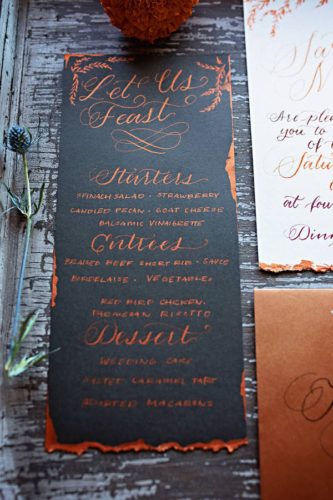 Let Us
Feast
Starters
SPINACH SALAD · STRAWBERRY
CANDIED PECAN · GOAT CHEESE
BALSAMIC VINAIGRETTE
Entrees
BRAISED BEEF SHORT RIB · SAUCE
BORDELAISE · VEGETABLE.
RED BIRD CHICKEN.
PARMESAN RISOTTO
Dessert
WEDDING CAKE
SALTED CARAMEL TART
ASSORTED MACARONS
Are plea
you to
of
Satu
at fou
Dinn